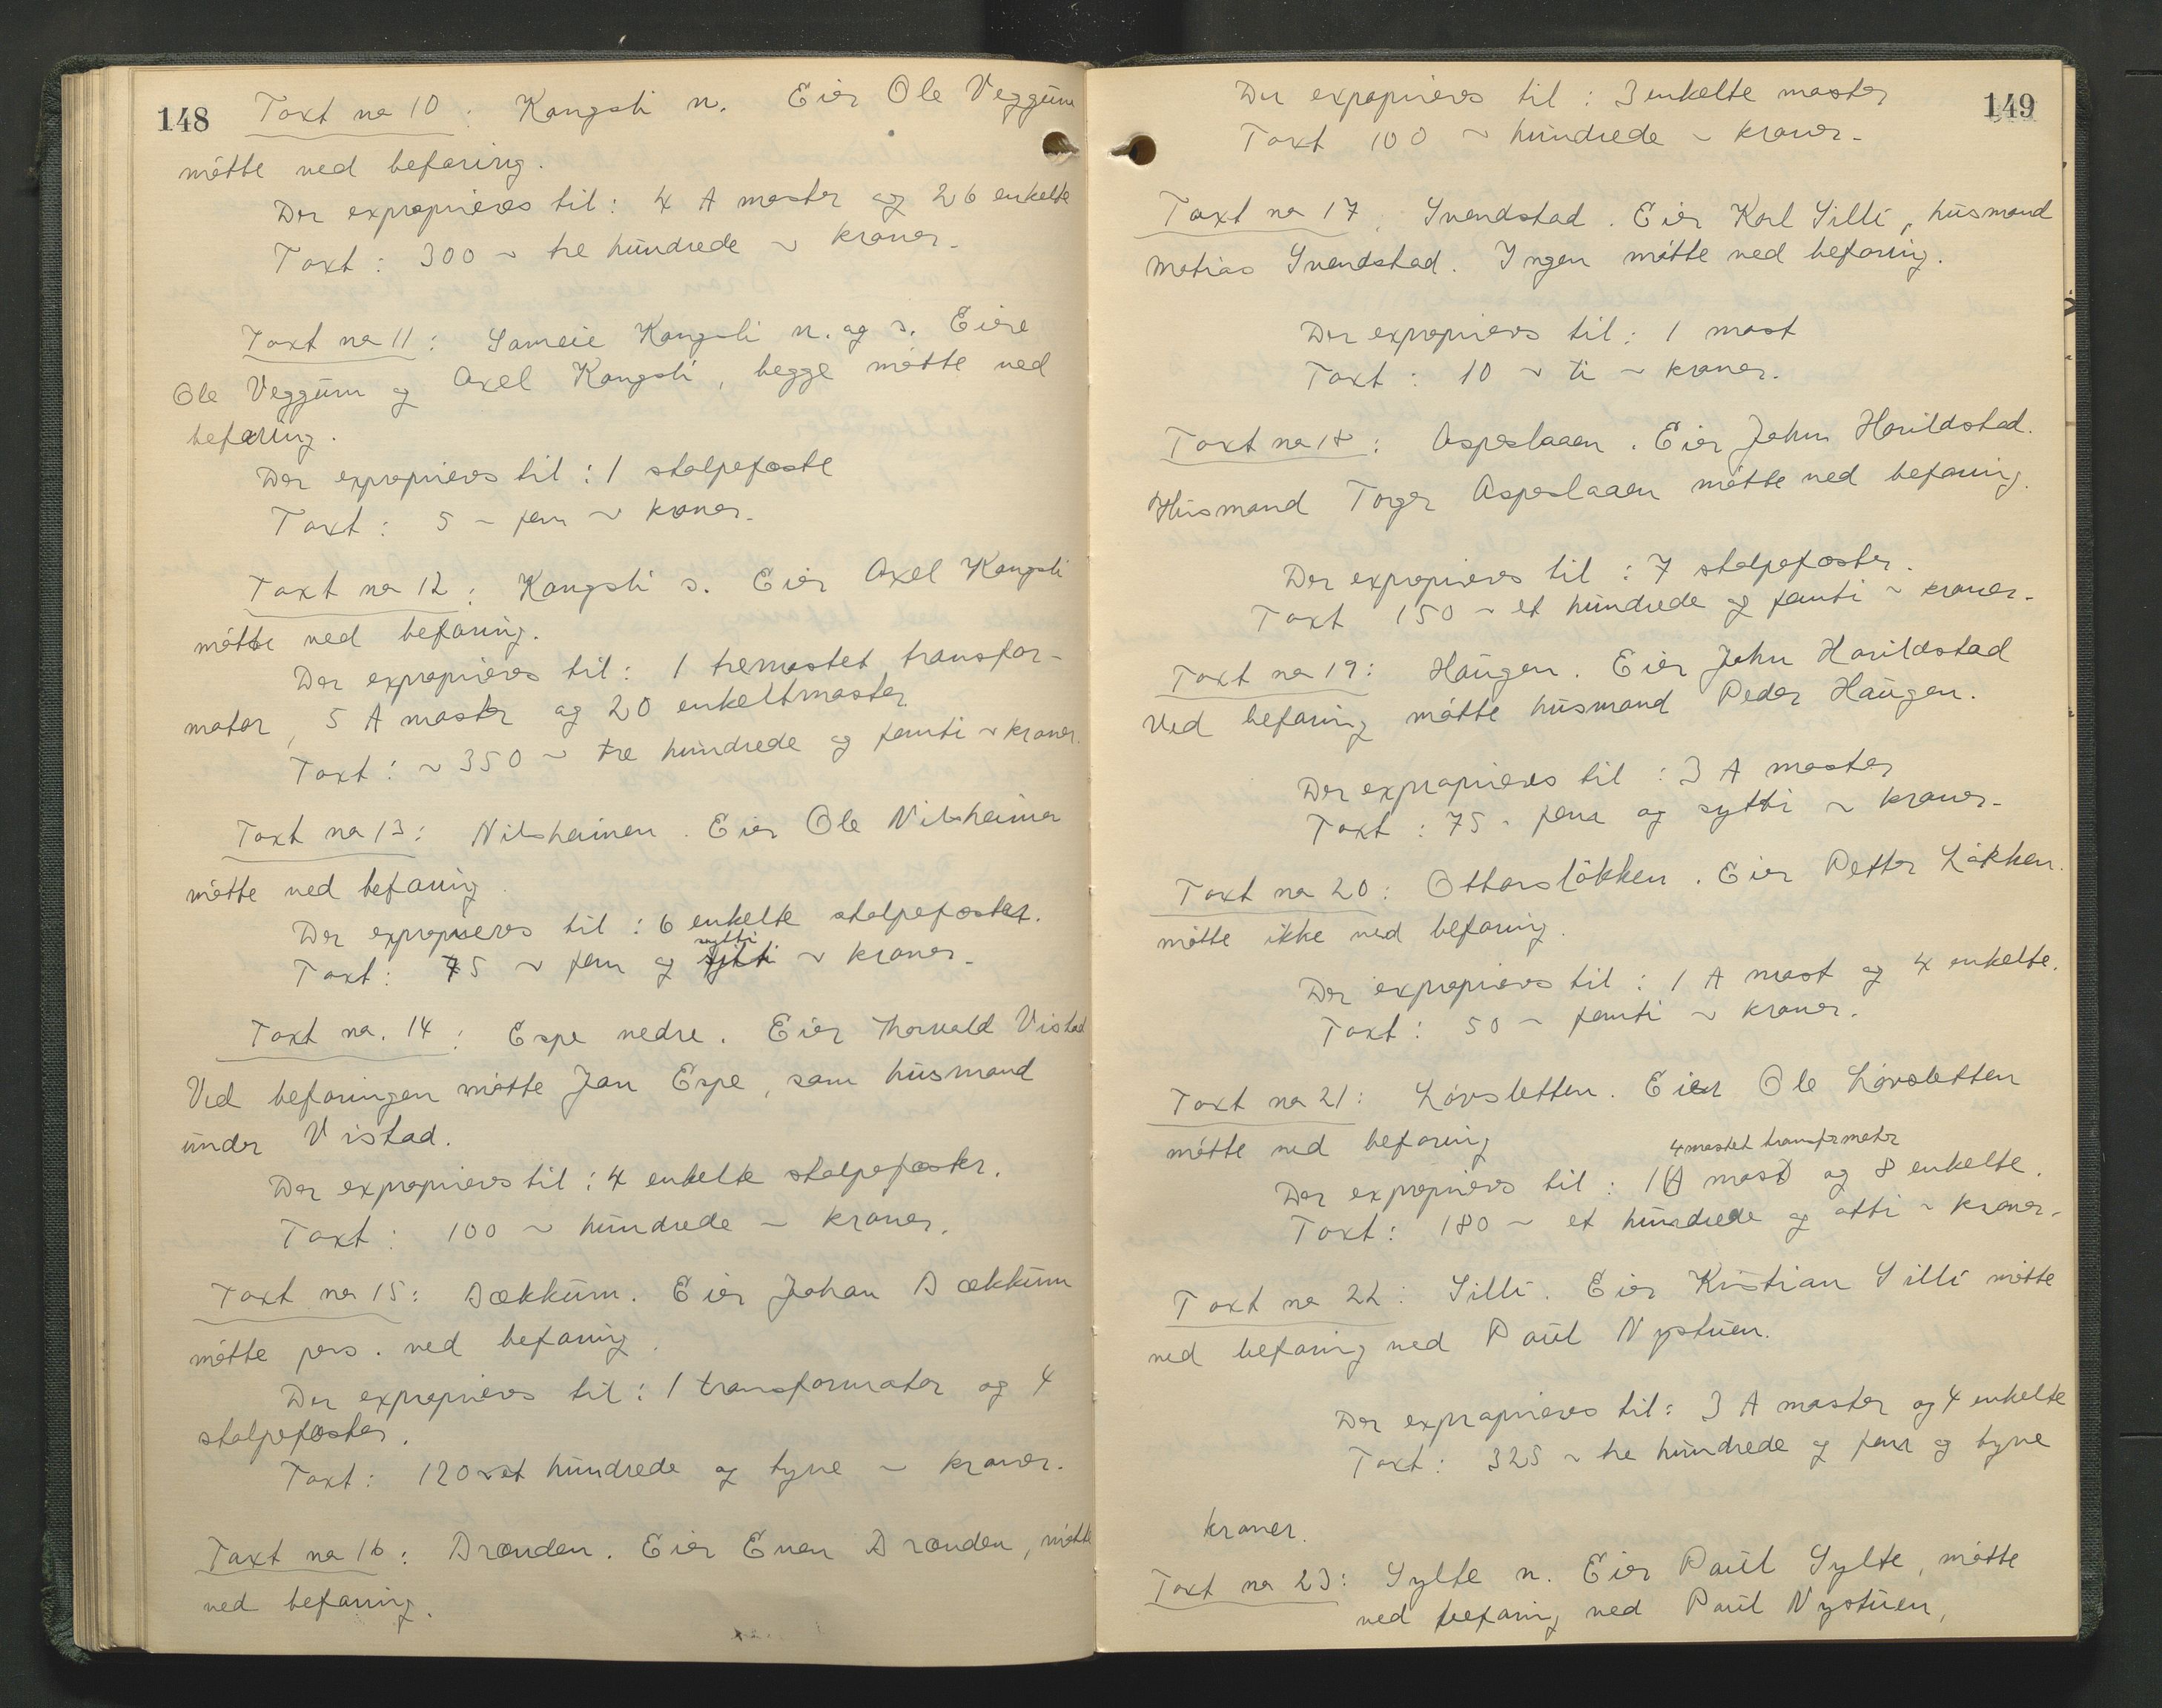 148
Taxt no 10: Kongsli n. Eier Ole Veggum
måtte ved befaring.
Der exproprieres til: 4 A master og 26 enkelte
Taxt: 300 ~ tre hundrede ~ kroner.
Taxt no 11: Sameie Kongsli n. og s. Eiere
Ole Veggum og Axel Kongsli, begge møtte ved
befaring.
Der exproprieres til: 1 stolpefæste
Taxt: 5 ~ fem ~ kroner.
Taxt no 12: Kongsli s. Eier Axel Kongsli
møtte ved befaring.
Der exproprieres til: 1 tremastet transfor-
mator, 5 A master og 20 enkeltmaster.
Taxt: ~ 350 ~ tre hundrede og femti ~ kroner.
Taxt no 13: Nilsheimen. Eier Ole Nilsheimen
møtte ved befaring
Der exproprieres til: 6 enkelte stolpefæster.
Taxt: 75 ~ fem og sytti ~ kroner.
Taxt no. 14: Espe nedre. Eier Thorvald Vistad
Ved befaringen møtte Jan Espe, som husmand
under Vistad.
Der exproprieres til: 4 enkelte stolpefæster.
Taxt: 100 ~ hundrede ~ kroner.
Taxt no 15: Bækkum. Eier Johan Bækkum
møtte pers. ved befaring.
Der exproprieres til: 1 transformator og 4
stolpefæster.
Taxt: 120 ~ et hundrede og tyve ~ kroner.
Taxt no 16: Brænden. Eier Even Brænden, møtte
ved befaring.
149
Der exproprieres til: 3 enkelte master
Taxt 100 ~ hundrede ~ kroner.
Taxt no 17, Svendstad. Eier Karl Silli, husmand
Matias Svendstad. Ingen møtte ved befaring.
Der exproprieres til: 1 mast
Taxt: 10 ~ ti ~ kroner.
Taxt no 18: Aspeslaaen. Eier John Harildstad.
Husmand Torger Aspeslaaen møtte ved befaring.
Der exproprieres til: 7 stolpefæster.
Taxt 150 ~ et hundrede og femti ~ kroner.
Taxt no 19: Haugen. Eier John Harildstad
Ved befaring møtte husmand Peder Haugen.
Der exproprieres til: 3 A master
Taxt: 75 ~ fem og sytti ~ kroner.
Taxt no 20: Ottarsløkken. Eier Petter Løkken.
møtte ikke ved befaring.
Der exproprieres til: 1 A mast og 4 enkelte.
Taxt: 50 ~ femti ~ kroner.
Taxt no 21: Løvsletten. Eier Ole Løvsletten
møtte ved befaring
4mastet transformator
Der exproprieres til: 1 (A mast) og 8 enkelte.
Taxt: 180 ~ et hundrede og otti ~ kroner.
Taxt no 22: Silli. Eier Kristian Silli møtte
ved befaring ved Paul Nystuen.
Der exproprieres til: 3 A master og 4 enkelte
Taxt: 325 ~ tre hundrede og fem og tyve
kroner.
Taxt no 23: Sylte n. Eier Paul Sylte, møtte
ved befaring ved Paul Nystuen,